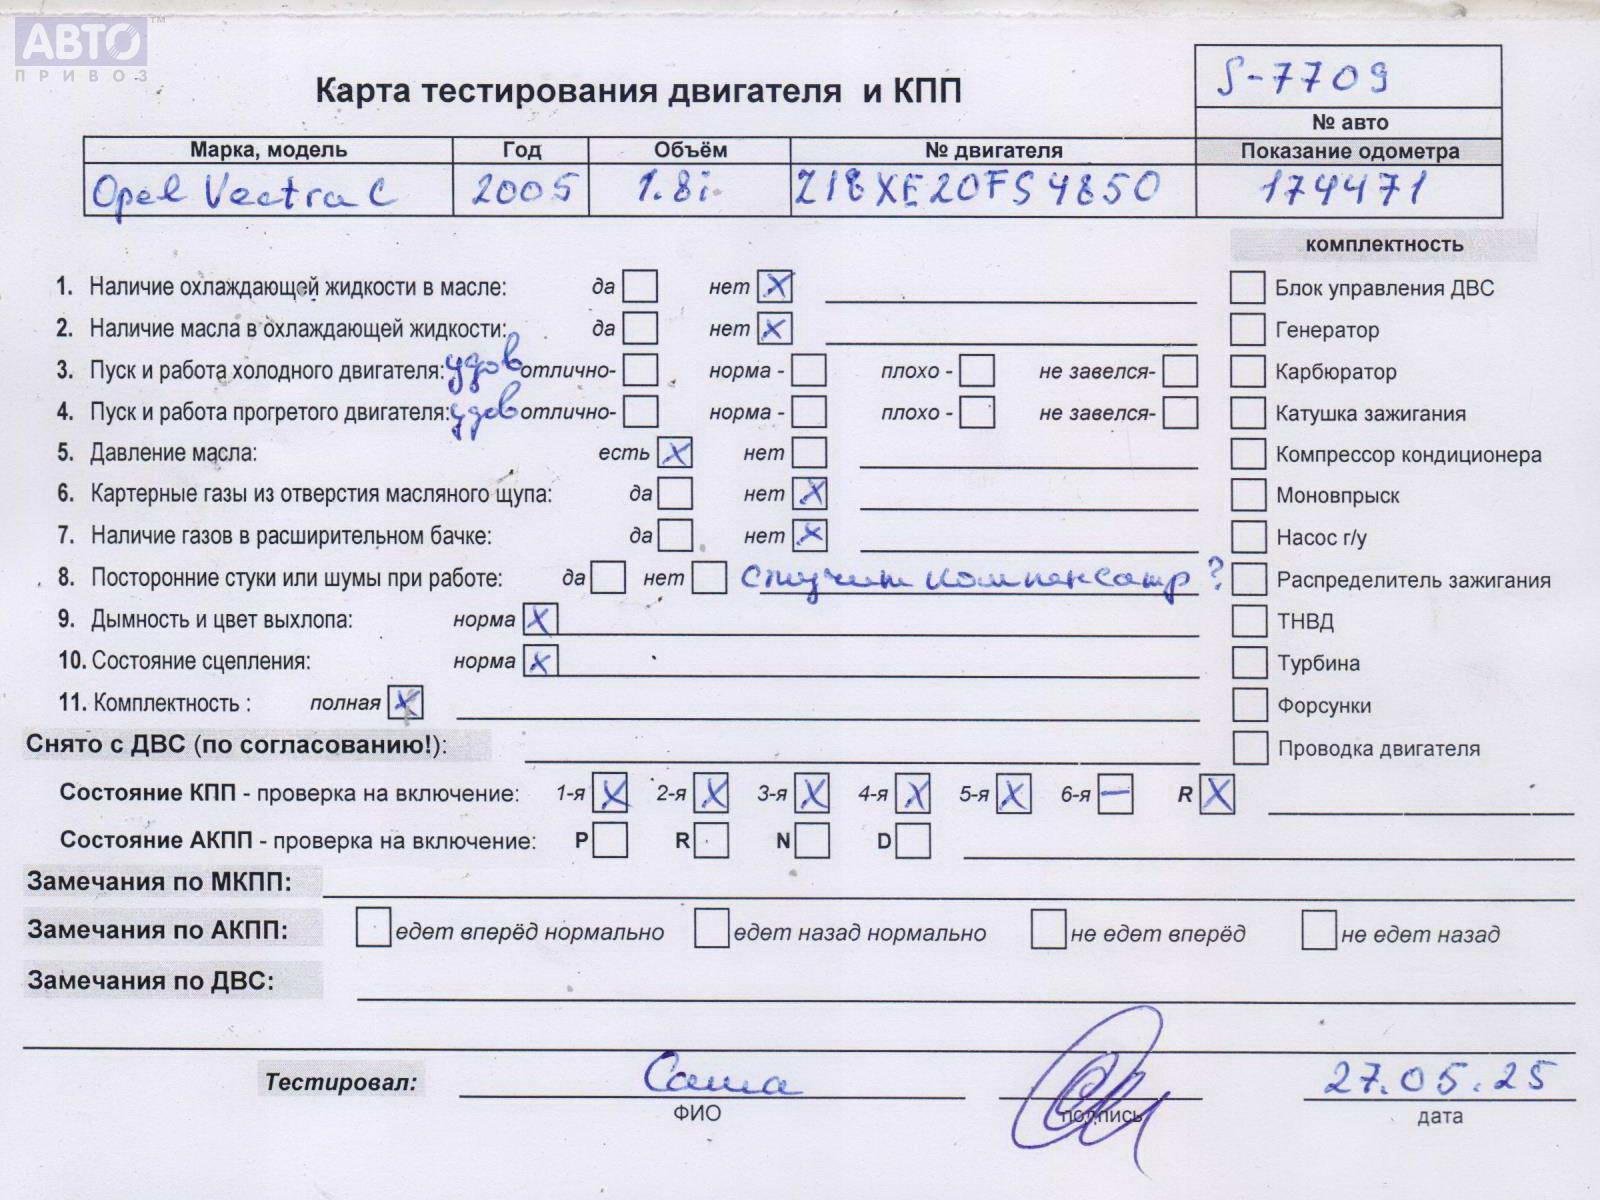 АВТО™
ПРИВОЗ
S-7709
Карта тестирования двигателя и КПП
№ авто
Марка, модель Год Объём № двигателя Показание одометра
Opel Vectra C 2005 1.8i Z18XE20FS4850 174471
комплектность
1. Наличие охлаждающей жидкости в масле: да нет X Блок управления ДВС
2. Наличие масла в охлаждающей жидкости: да нет X Генератор
3. Пуск и работа холодного двигателя: удов отлично- норма - плохо - не завелся- Карбюратор
4. Пуск и работа прогретого двигателя: удов отлично- норма - плохо - не завелся- Катушка зажигания
5. Давление масла: есть X нет Компрессор кондиционера
6. Картерные газы из отверстия масляного щупа: да нет X Моновпрыск
7. Наличие газов в расширительном бачке: да нет X Насос г/у
8. Посторонние стуки или шумы при работе: да нет стучит компенсатр ? Распределитель зажигания
9. Дымность и цвет выхлопа: норма X ТНВД
10. Состояние сцепления: норма X Турбина
11. Комплектность : полная X Форсунки
Снято с ДВС (по согласованию!): Проводка двигателя
Состояние КПП - проверка на включение: 1-я X 2-я X 3-я X 4-я X 5-я X 6-я — R X
Состояние АКПП - проверка на включение: P R N D
Замечания по МКПП:
Замечания по АКПП: едет вперёд нормально едет назад нормально не едет вперёд не едет назад
Замечания по ДВС:
Тестировал: Саша 27.05.25
ФИО подпись дата